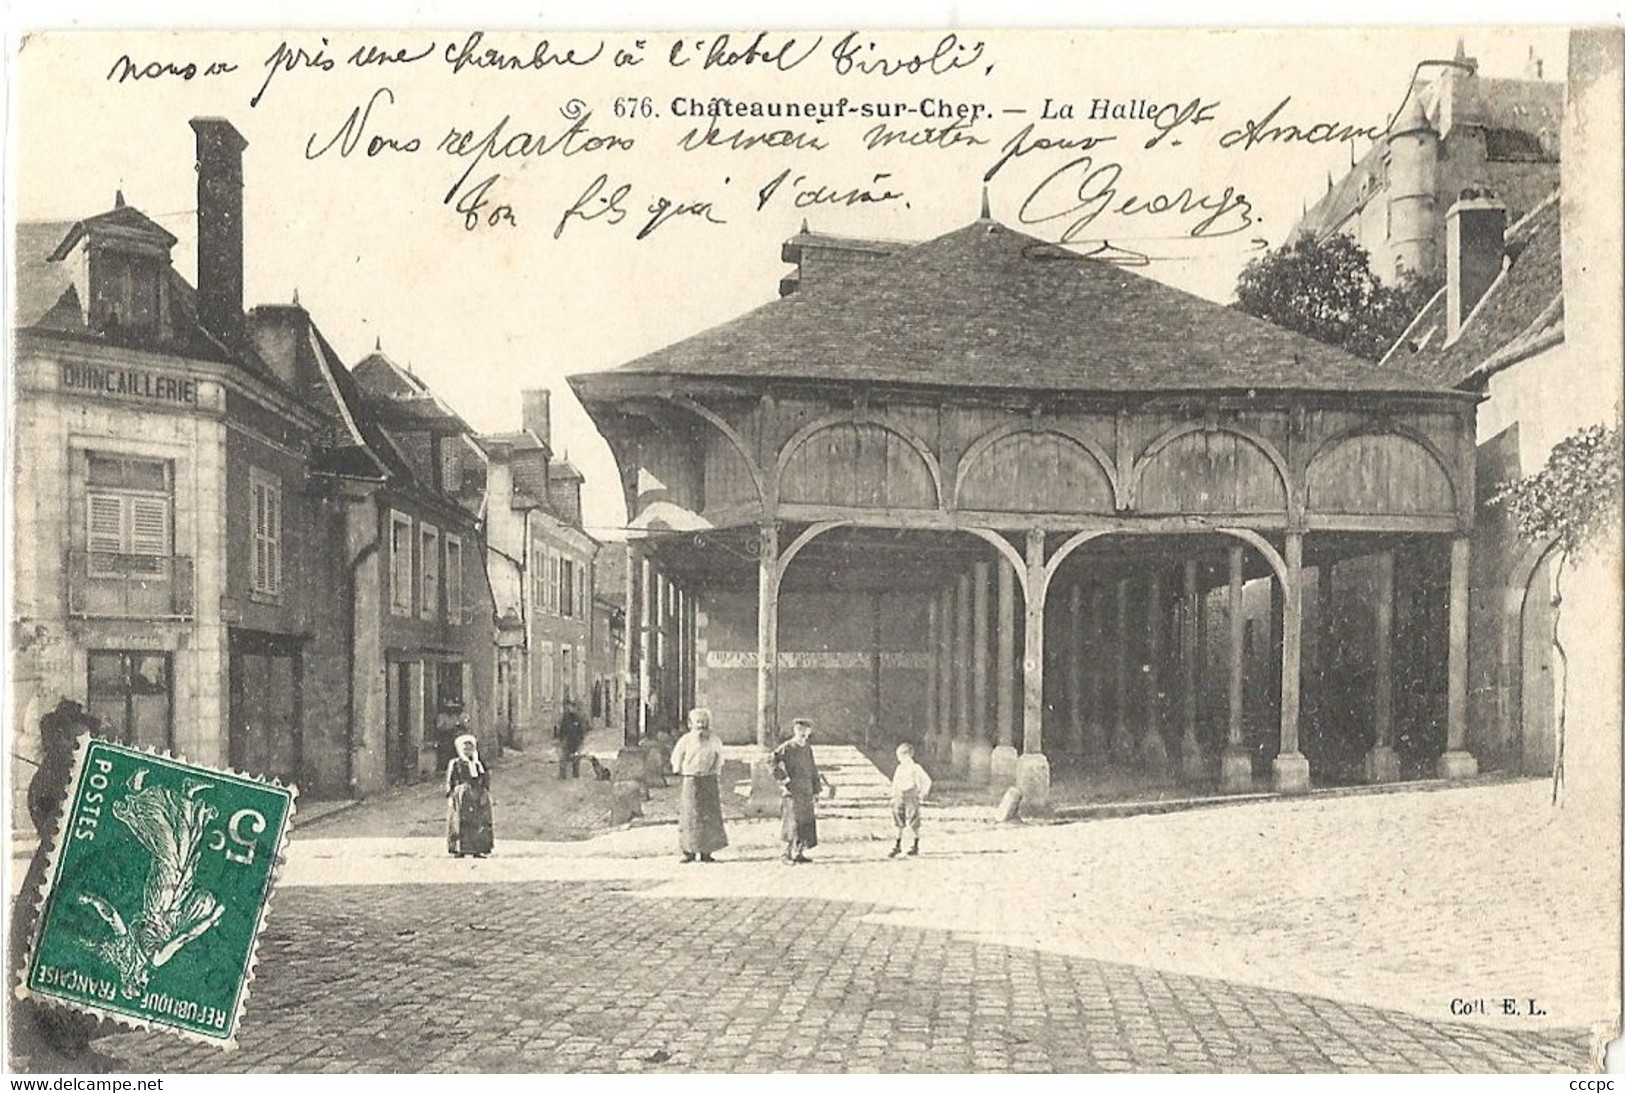 nous a pris une chambre à l'hotel Tivoli.
676. Châteauneuf-sur-Cher. — La Halle
Nous repartons demain matin pour St Amand
Ton fils qui t'aime. Georges.
QUINCAILLERIE
POSTES
5c
REPUBLIQUE FRANÇAISE
Coll. E. L.
www.delcampe.net
cccpc